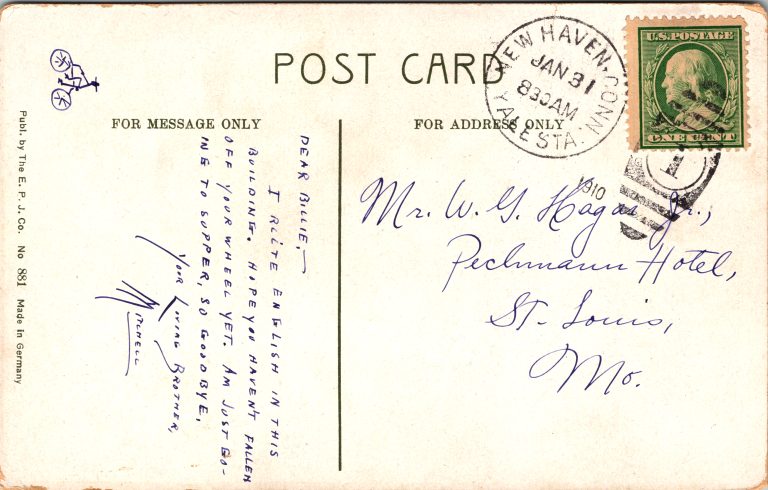 POST CARD
FOR MESSAGE ONLY
FOR ADDRESS ONLY
NEW HAVEN, CONN.
JAN 31
830AM
YALE STA.
1910
U.S. POSTAGE
ONE CENT
Mr. W. G. Hagar Jr.,
Pechmann Hotel,
St. Louis,
Mo.
DEAR BILLIE,—
I RITE ENGLISH IN THIS
BUILDING. HOPE YOU HAVEN'T FALLEN
OFF YOUR WHEEL YET. AM JUST GO-
ING TO SUPPER, SO GOODBYE,
YOUR LOVING BROTHER,
MITCHELL
Publ. by The E. P. J. Co. No 881 Made in Germany